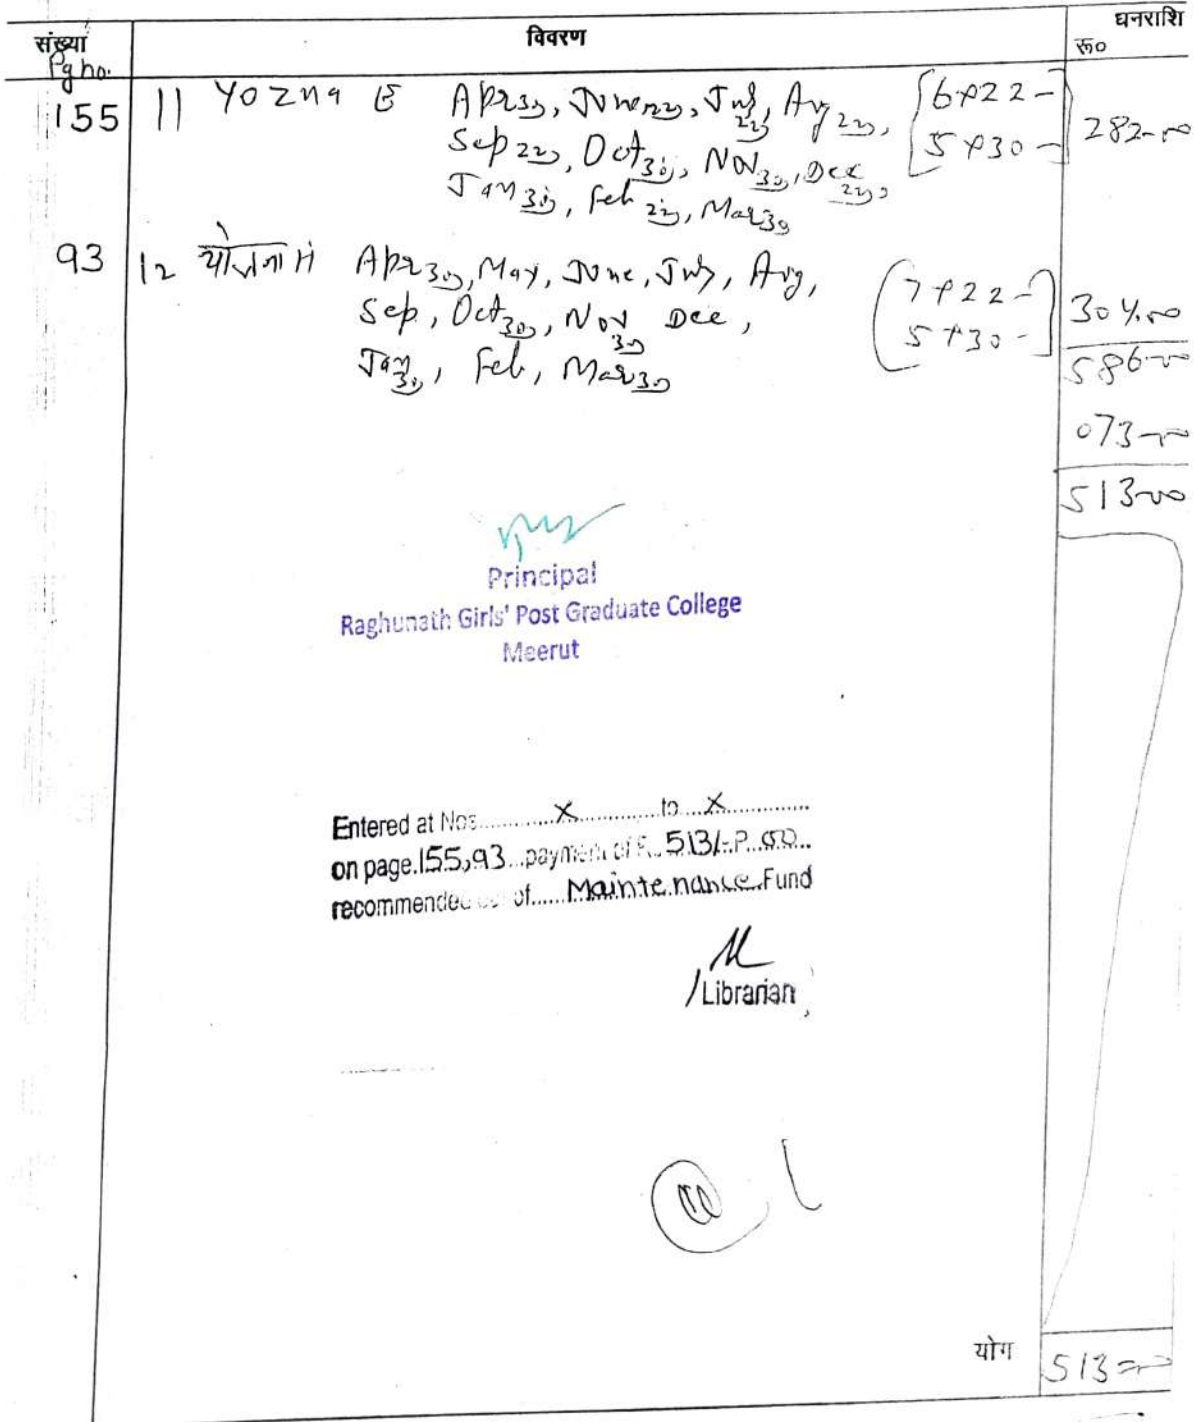 संख्या विवरण धनराशि
Pg no. रू०
155 11 Yozna E Apr 30, June 22, July 22, Aug 22, [6×22- 282-00
Sep 22, Oct 30, Nov 30, Dec 22, 5×30-]
Jan 30, Feb 22, Mar 30
93 12 योजना Apr 30, May, June, July, Aug, [7×22- 304.00
Sep, Oct 30, Nov 30 Dec, 5×30-] 586-00
Jan 30, Feb, Mar 30
073-00
513-00
Principal
Raghunath Girls' Post Graduate College
Meerut
Entered at Nos. X to X
on page 155,93 payment of R. 513/- P. 00
recommended out of Maintenance Fund
Librarian
योग 513=00